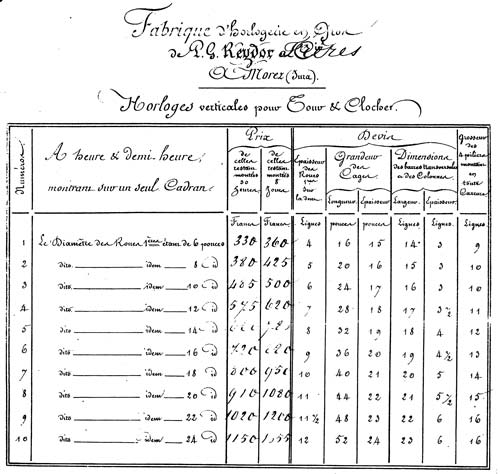 Fabrique d'Horlogerie en Gros
de P. G. Reydor
A Morez (Jura).
Horloges verticales pour Tour & Clocher.
Numéros
A heure & demi-heure,
montrant sur un seul Cadran.
Prix
de celles restant montées 30 heures
de celles restant montées 8 jours
Devis
Epaisseur des Roues
Grandeur des Cages
Dimensions des barres transversales & des Colonnes
Grosseur des 4 piliers montans en toute Carrure
Longueurs. Epaisseur. Largeur. Epaisseur.
Francs Francs Lignes pouces pouces Lignes. Lignes. Lignes.
1 Le Diamètre des Roues 1ères étant de 6 pouces 330 360 4 16 15 14 3 9
2 dito idem 8 d 380 425 5 20 16 15 3 10
3 dito idem 10 d 485 500 6 24 17 16 3 10
4 dito idem 12 d 575 620 7 28 18 17 3 1/2 11
5 dito idem 14 d 8 32 19 18 4 12
6 dito idem 16 d 9 36 20 19 4 1/2 13
7 dito idem 18 d 800 950 10 40 21 20 5 14
8 dito idem 20 d 910 1080 11 44 22 21 5 1/2 15
9 dito idem 22 d 1020 1200 11 1/2 48 23 22 6 16
10 dito idem 24 d 1150 12 52 24 23 6 16